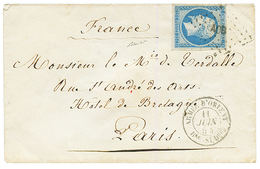 France
Monsieur le Mis de Verdalle
Rue St André des Arts
Hotel de Bretagne
Paris.
11
JUIN